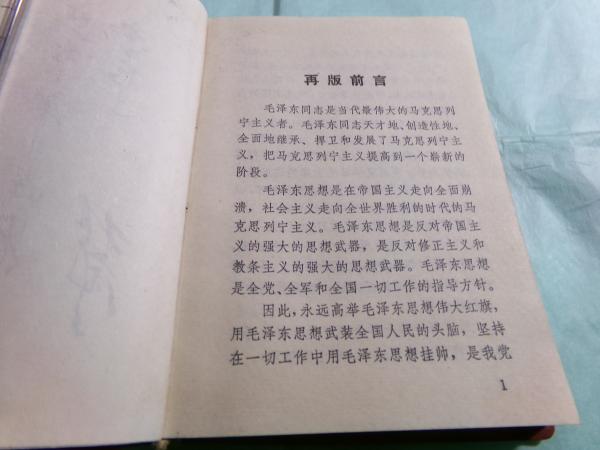 再版前言
毛泽东同志是当代最伟大的马克思列
宁主义者。毛泽东同志天才地、创造性地、
全面地继承、捍卫和发展了马克思列宁主
义，把马克思列宁主义提高到一个崭新的
阶段。
毛泽东思想是在帝国主义走向全面崩
溃，社会主义走向全世界胜利的时代的马
克思列宁主义。毛泽东思想是反对帝国主
义的强大的思想武器，是反对修正主义和
教条主义的强大的思想武器。毛泽东思想
是全党、全军和全国一切工作的指导方针。
因此，永远高举毛泽东思想伟大红旗，
用毛泽东思想武装全国人民的头脑，坚持
在一切工作中用毛泽东思想挂帅，是我党
1